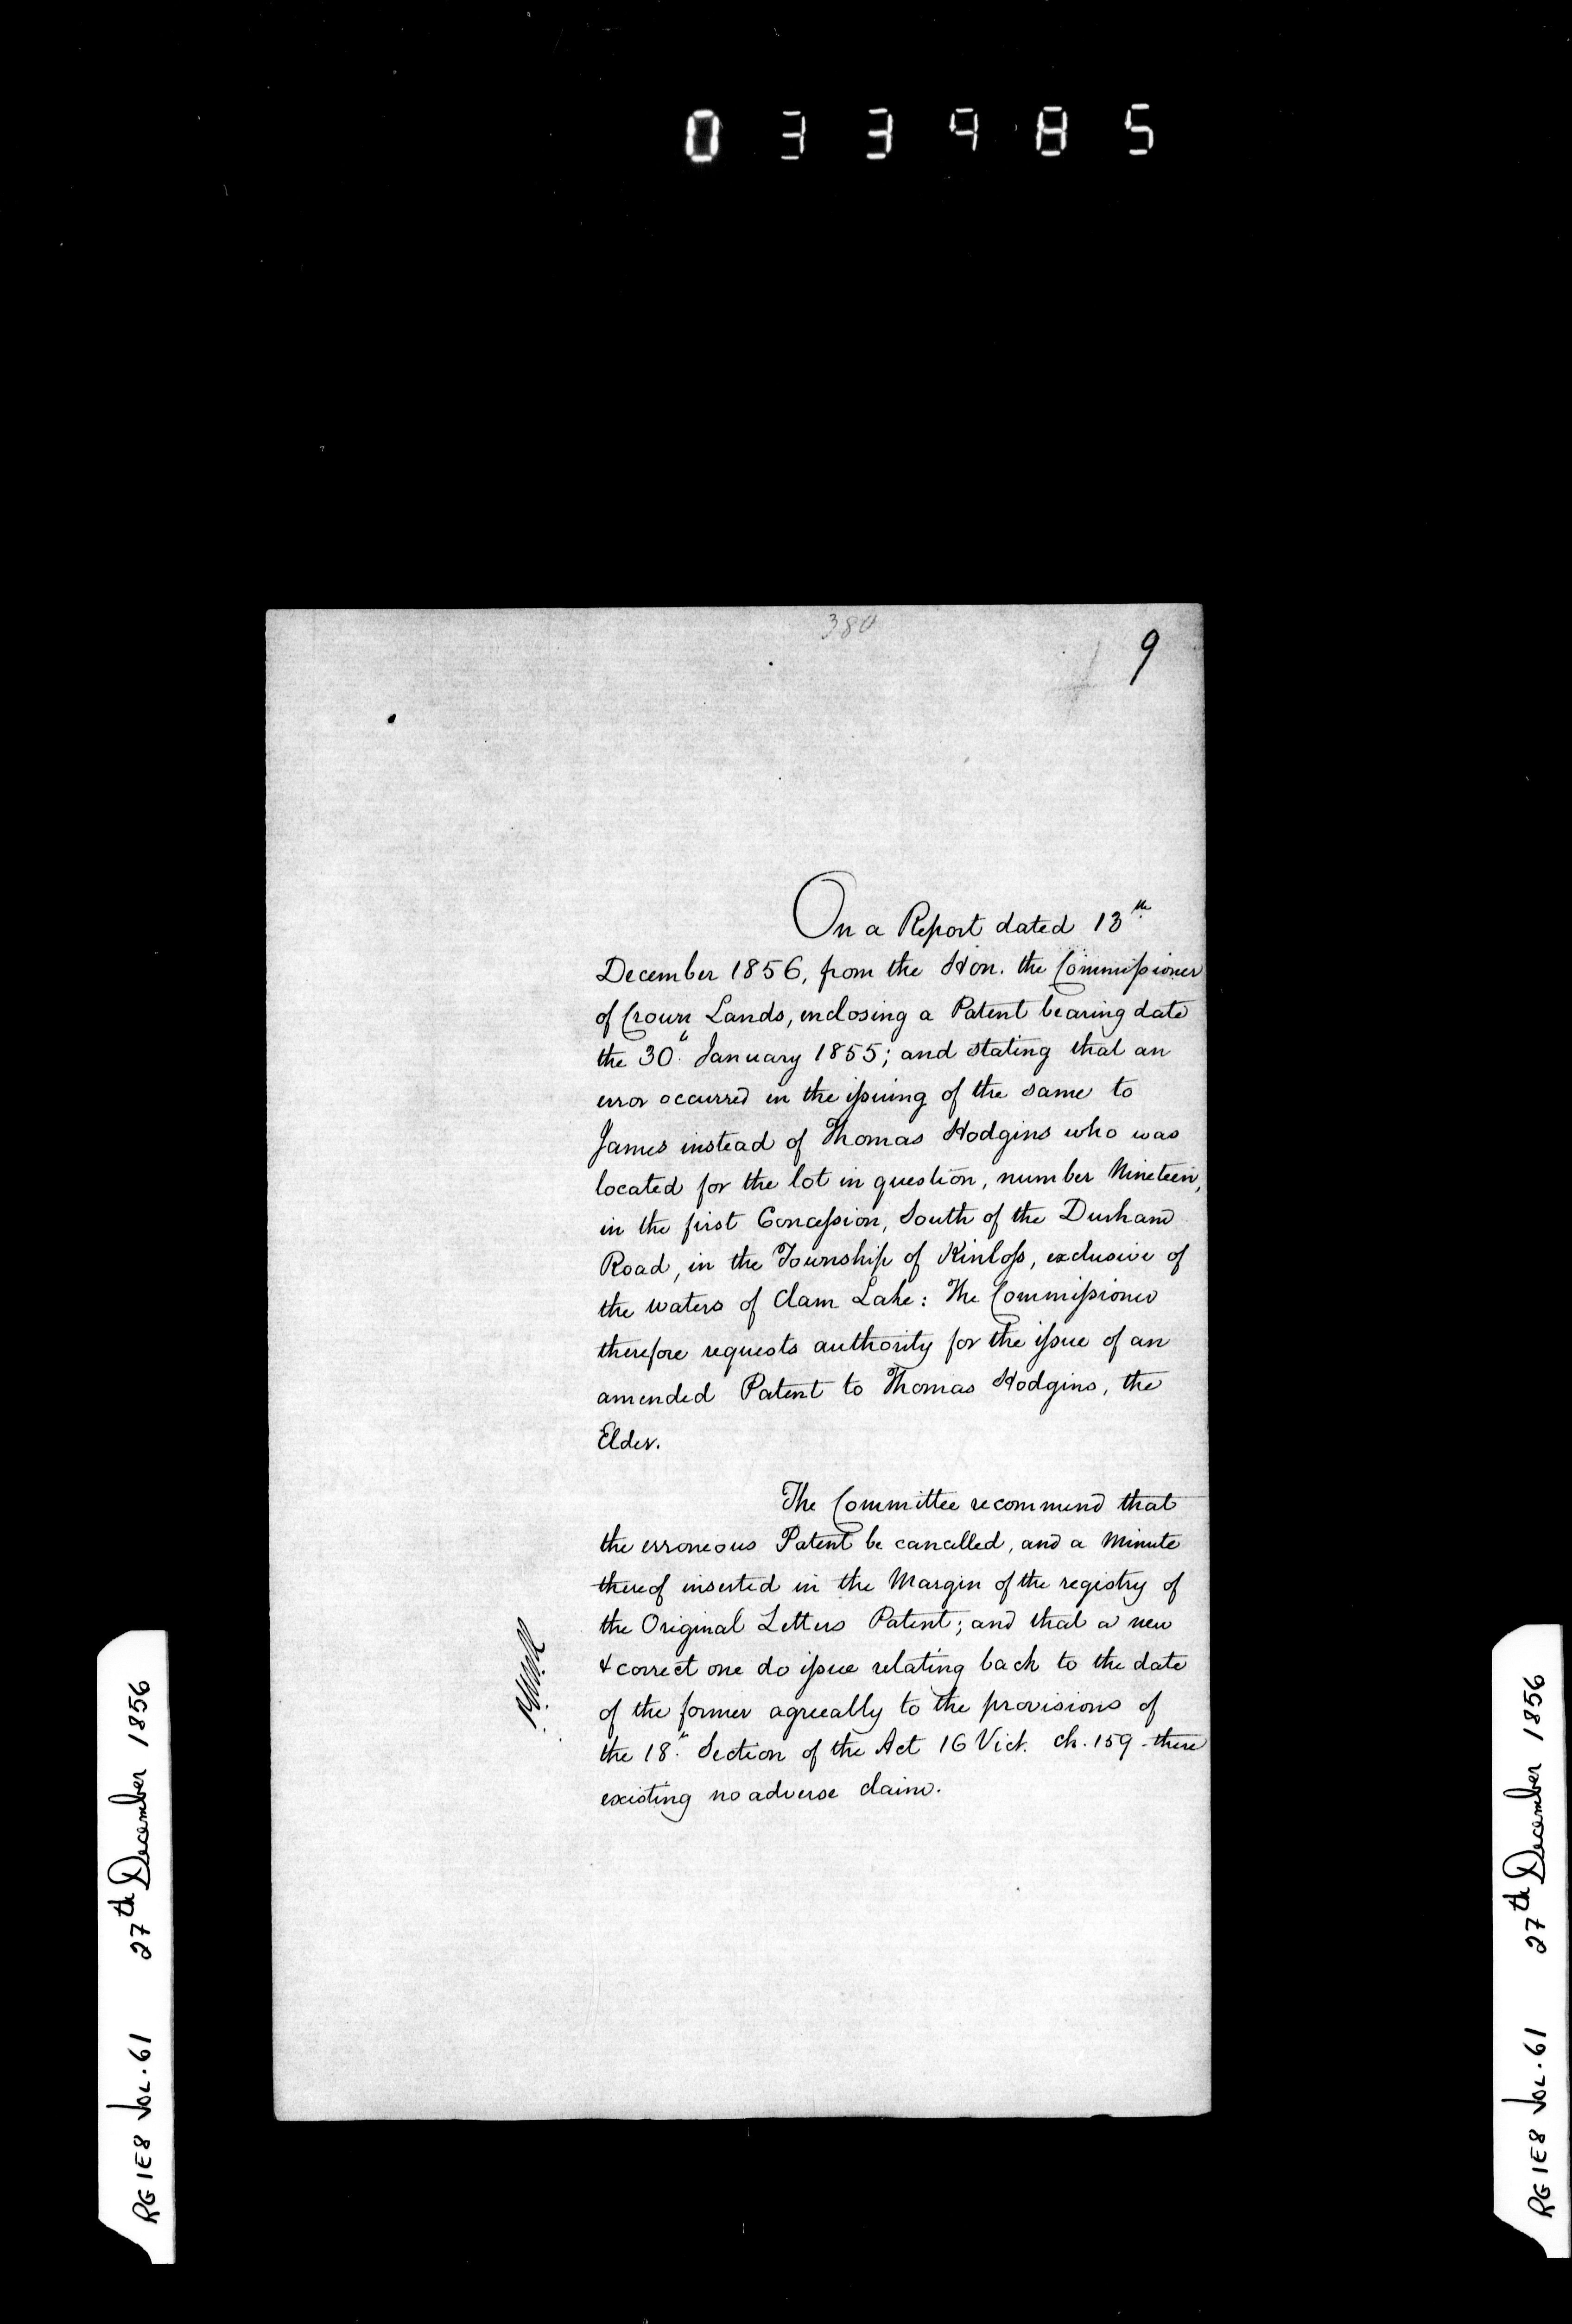 033985
380
9
On a Report dated 13th
December 1856, from the Hon. the Commissioner
of Crown Lands, inclosing a Patent bearing date
the 30th January 1855; and stating that an
error occurred in the issuing of the same to
James instead of Thomas Hodgins who was
located for the lot in question, number Nineteen,
in the first Concession, South of the Durham
Road, in the Township of Kinloss, exclusive of
the waters of Clam Lake: The Commissioner
therefore requests authority for the issue of an
amended Patent to Thomas Hodgins, the
Elder.
The Committee recommend that
the erroneous Patent be cancelled, and a Minute
thereof inserted in the Margin of the registry of
the Original Letters Patent; and that a new
& correct one do issue relating back to the date
of the former agreeably to the provisions of
the 18th Section of the Act 16 Vict. ch. 159 - there
existing no adverse claim.
RG 1E8 VOL. 61 27th December 1856
RG 1E8 VOL. 61 27th December 1856